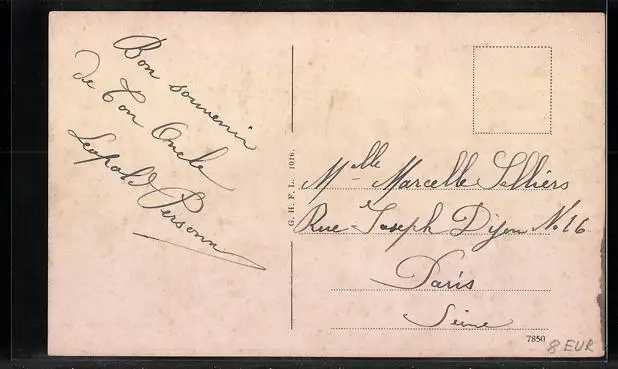 Bon souvenir
de Ton Oncle
Léopold Personn
G. H. F. L. 1016.
Mlle Marcelle Selliers
Rue Joseph Dijon No. 16
Paris
Seine
7850
8 EUR